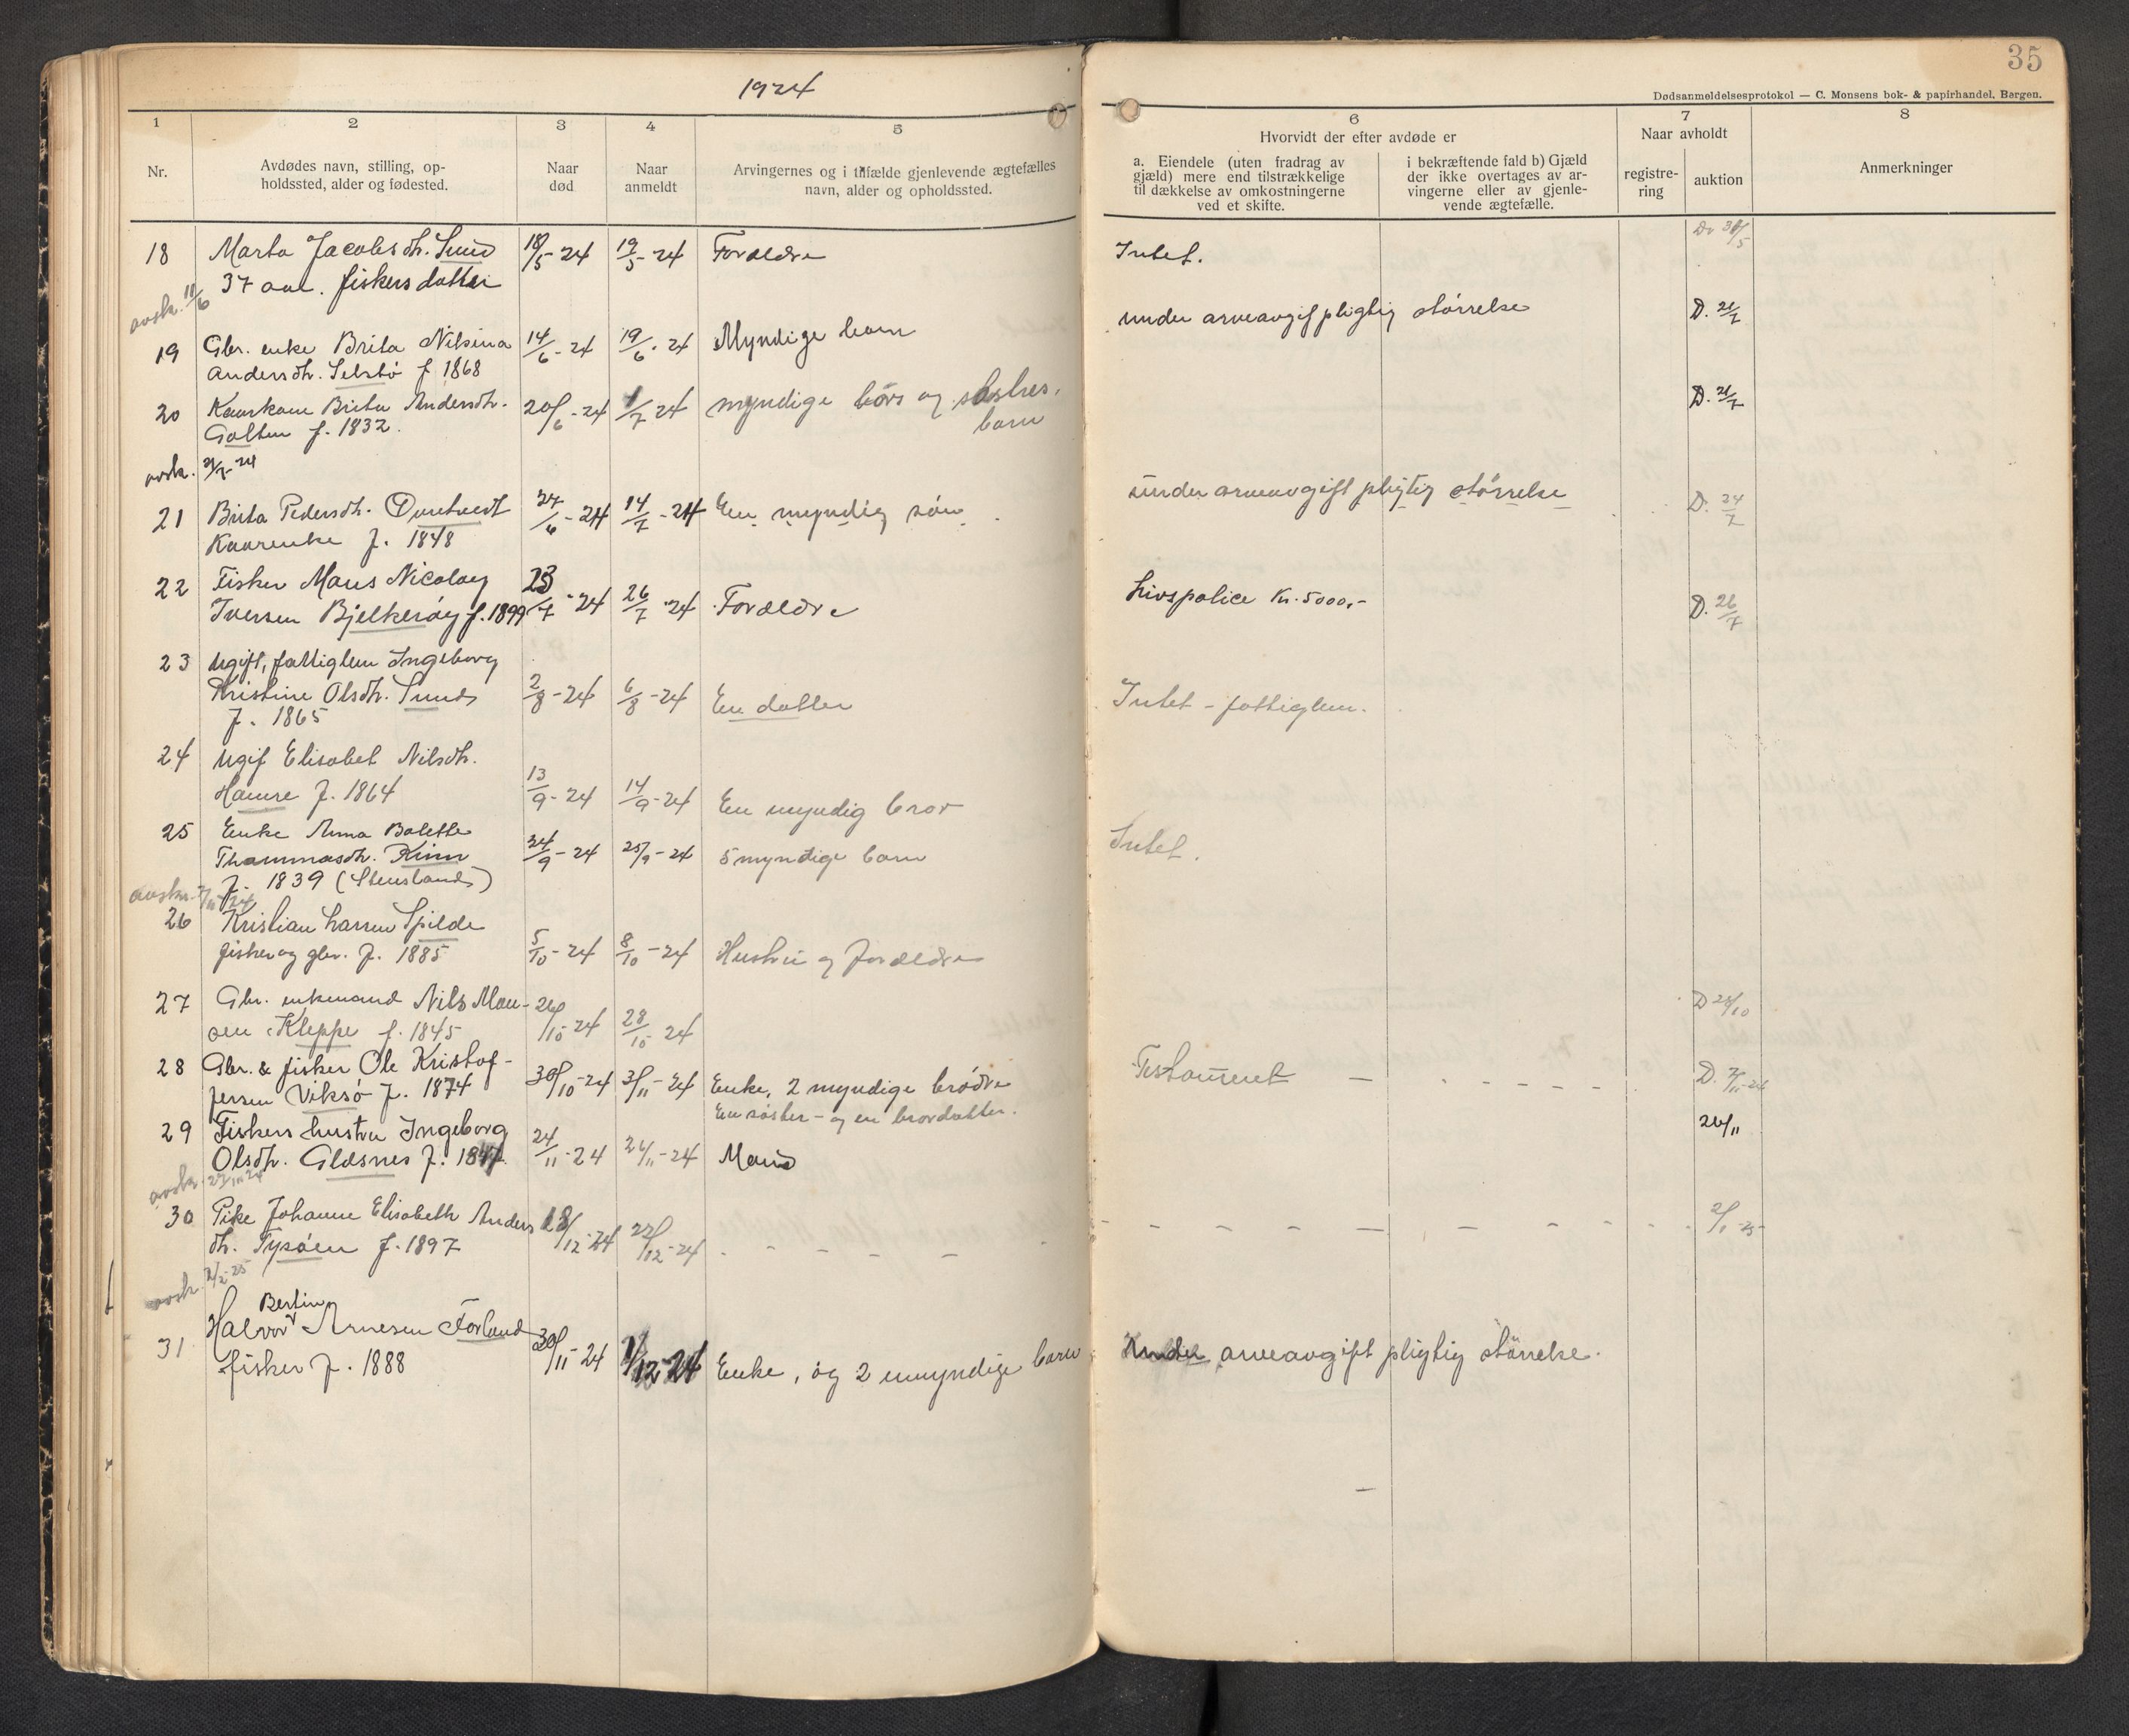 1924
35
Dødsanmeldelsesprotokol — C. Monsens bok- & papirhandel, Bergen.
1
2
3
4
5
6
7
8
Nr.
Avdødes navn, stilling, op-
holdssted, alder og fødested.
Naar
død
Naar
anmeldt
Arvingernes og i tilfælde gjenlevende ægtefælles
navn, alder og opholdssted.
Hvorvidt der efter avdøde er
a. Eiendele (uten fradrag av
gjæld) mere end tilstrækkelige
til dækkelse av omkostningerne
ved et skifte.
i bekræftende fald b) Gjæld
der ikke overtages av ar-
vingerne eller av gjenle-
vende ægtefælle.
Naar avholdt
registre-
ring
auktion
Anmerkninger
18 Marta Jacobsdh. Sund 18/5-24 19/5-24 Forældre Intet.
37 aar. fiskers datter
avsk. 11/6
19 Gbr. enke Brita Nilsina 14/6-24 19/6-24 Myndige barn under arveavgif pligtig störrelse D. 21/7
Andersdh. Selstö f 1868
20 Kaarkone Brita Andersdh. 20/6-24 1/7 24 myndige börn og söstres. D. 21/7
Golten f. 1832. barn
avsk. 21/7-24
21 Brita Pedersdh. 27/6-24 14/7-24 En myndig sön under arveavgift pligtig störrelse D. 24/7
Kaarenke f. 1848
22 Fisker Mons Nicolay 23/7-24 26/7-24 Forældre Livspolice Kr. 5000,- D. 26/7
Iversen Bjelkeröy f. 1899
23 Ugift, fattiglem Ingeborg
Kristine Olsdh. Sund 2/8-24 6/8-24 En datter Intet - fattiglem.
f. 1865
24 Ugif Elisabet Nilsdh.
Hamre f. 1864 13/9-24 14/9-24 En myndig bror
25 Enke Anna Bolette
Thommasdh. Kinn 24/9-24 25/9-24 5 myndige barn Intet.
f. 1839 (Stensland)
avsk.
26 Kristian Larsen Spilde
fisker og gbr. f. 1885 5/10-24 8/10-24 Hustru og forældre
27 Gbr. enkemand Nils Mon- 26/10-24 28/10 24 D 28/10
sen Kleppe f. 1845
28 Gbr. & fisker Ole Kristof- 30/10-24 3/11-24 Enke, 2 myndige brödre Testament D.
fersen Viksö f. 1874 En söster - og en brordatter.
29 Fiskers hustru Ingeborg 24/11-24 26/11-24 Mand 26/11
Olsdh. Glesnes f.
avsk.
30 Pike Johanne Elisabeth Anders 18/12-24 22/12-24 2/1-25
dh. Tysöen f. 1897
avsk. 2/2-25
Bertin
31 Halvor Arnesen Forland 30/11-24 1/12-24 Enke, og 2 umyndige barn Under arveavgift pligtig störrelse.
fisker f. 1888